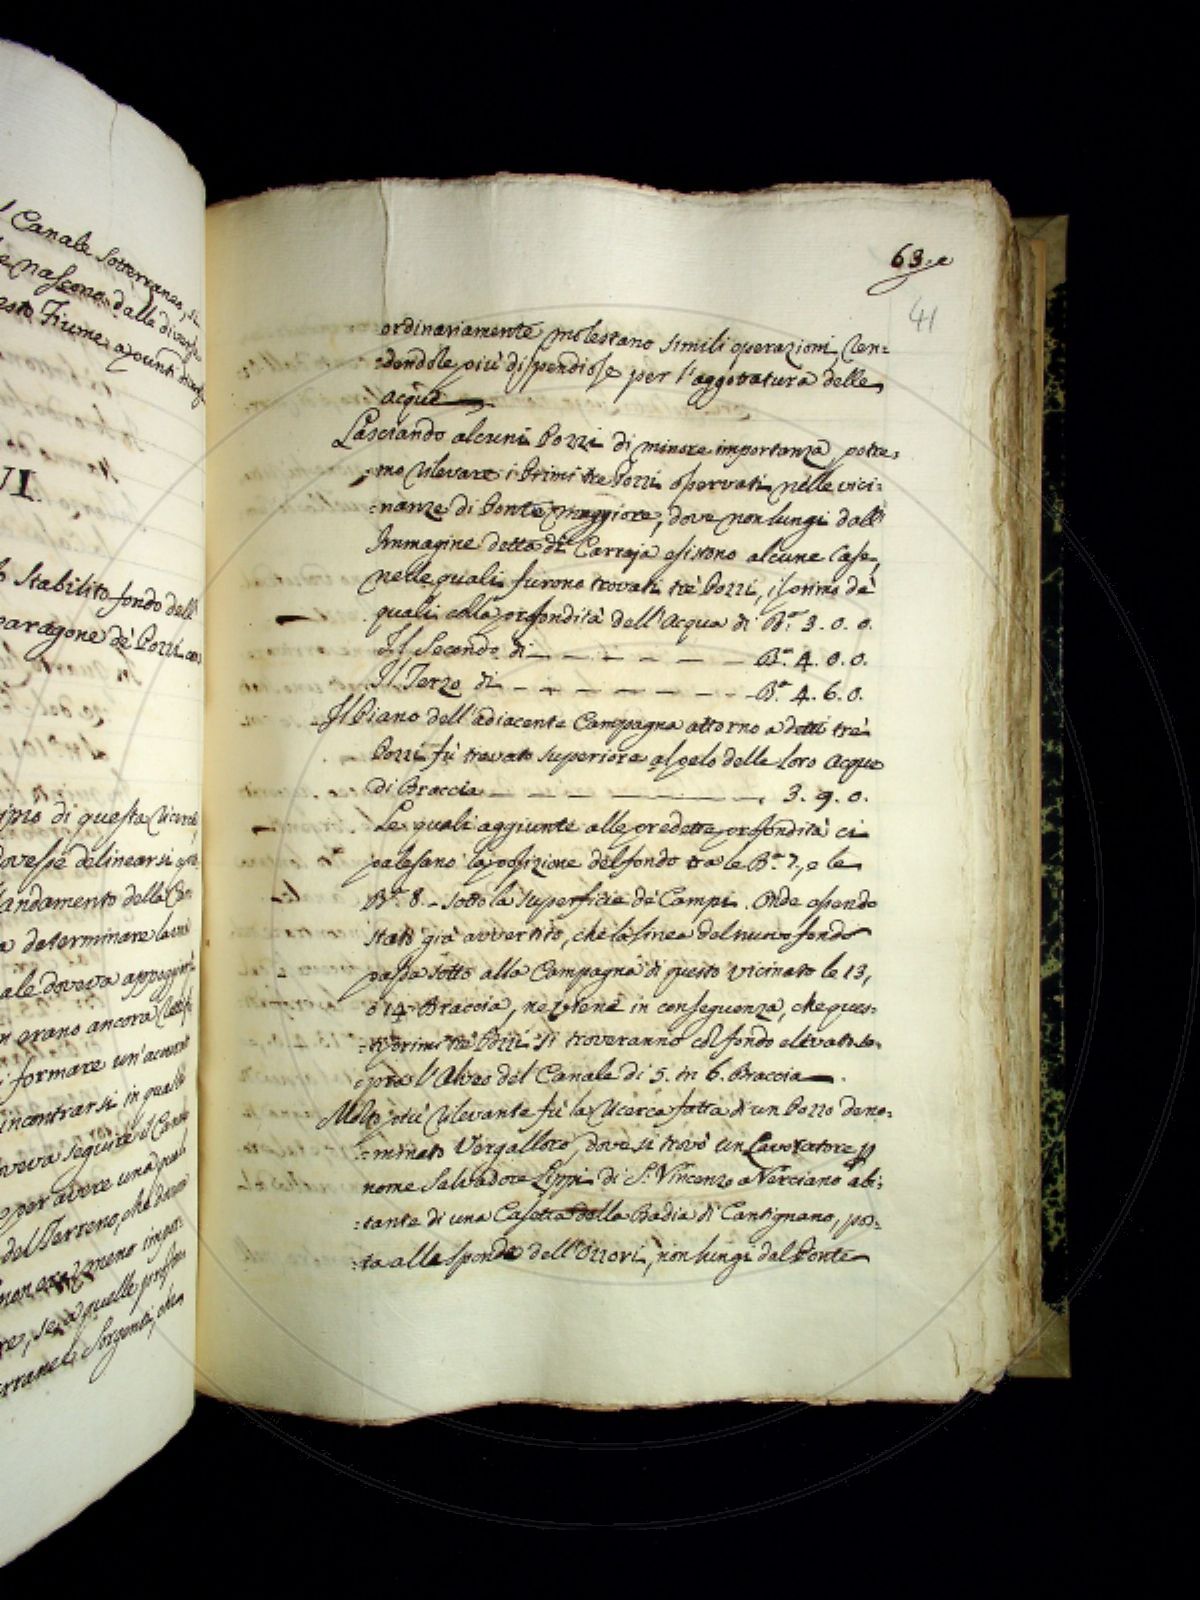 l Canale sotterraneo, si
e nascono dalle diverse
esto Fiume a punti di
VI.
o stabilito fondo dell'
paragone de' Pozzi
ipio di questa ricerca
dovesse delinearsi
andamento della
a determinare la
ale doveva appoggiarsi
n erano ancora
formare un'
incontrarsi in quali
veva seguire il Canale
e per avere una qual
del Terreno, che dava
non era meno impor-
re, se a quelle profon
erranee Sorgenti, che
63.
41
ordinariamente molestano simili operazioni ren-
-dendole più dispendiose per l'aggottatura delle
acque
Lasciando alcuni Pozzi di minore importanza, potre-
-mo rilevare i Primi tre Pozzi osservati nelle vici-
-nanze di Ponte maggiore, dove non lungi dall'
Immagine detta di Carraja esistono alcune Case,
nelle quali furono trovati tre Pozzi, il primo de'
quali colla profondità dell'Acqua di Ba. 3. 0. 0.
Il Secondo di — — — — — — Ba. 4. 0. 0.
Il Terzo di — — — — — — Ba. 4. 6. 0.
Il Piano dell'adiacente Campagna attorno a detti tre
Pozzi fù trovato superiore al pelo delle loro Acque
di Braccia — — — — — 3. 9. 0.
Le quali aggiunte alle predette profondità ci
palesano la posizione del fondo tra le Ba. 7, e le
Ba. 8. sotto la superficie de' Campi. Onde essendo
stato già avvertito, che la linea del nuovo fondo
passa sotto alla Campagna di questo vicinato le 13,
ò 14 Braccia, ne viene in conseguenza, che ques-
-ti primi tre Pozzi si troveranno col fondo elevato so-
-pra l'Alveo del Canale di 5. in 6. Braccia.
Molto più rilevante fù la ricerca fatta di un Pozzo deno-
-minato Vergalloro, dove si trovò un Lavoratore p
nome Salvadore Lippi di S. Vincenzo a Verciano abi-
-tante di una Casetta della Badia di Cantignano, pos-
-ta alle sponde dell'Ozzori, non lungi dal Ponte